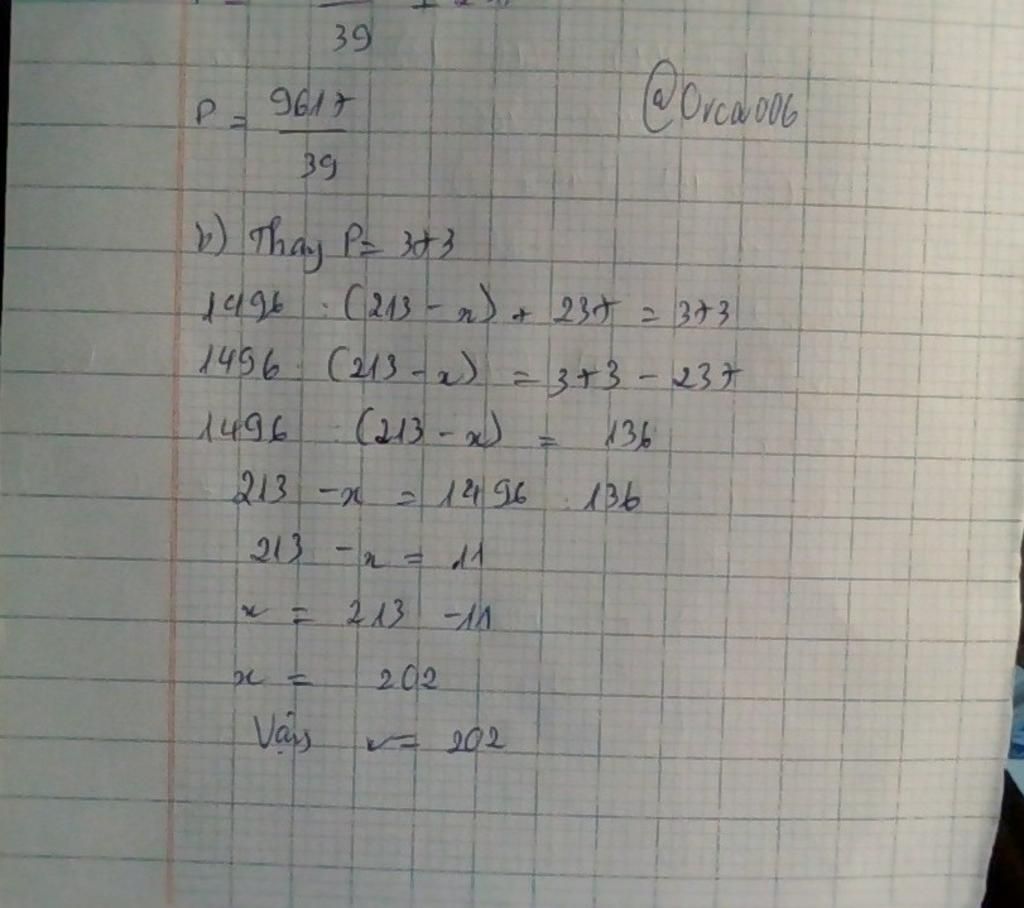 39
P = 9617
39
@Orca006
b) Thay P = 373
1496 : (213 - x) + 237 = 373
1496 : (213 - x) = 373 - 237
1496 : (213 - x) = 136
213 - x = 1496 : 136
213 - x = 11
x = 213 - 11
x = 202
Vậy x = 202